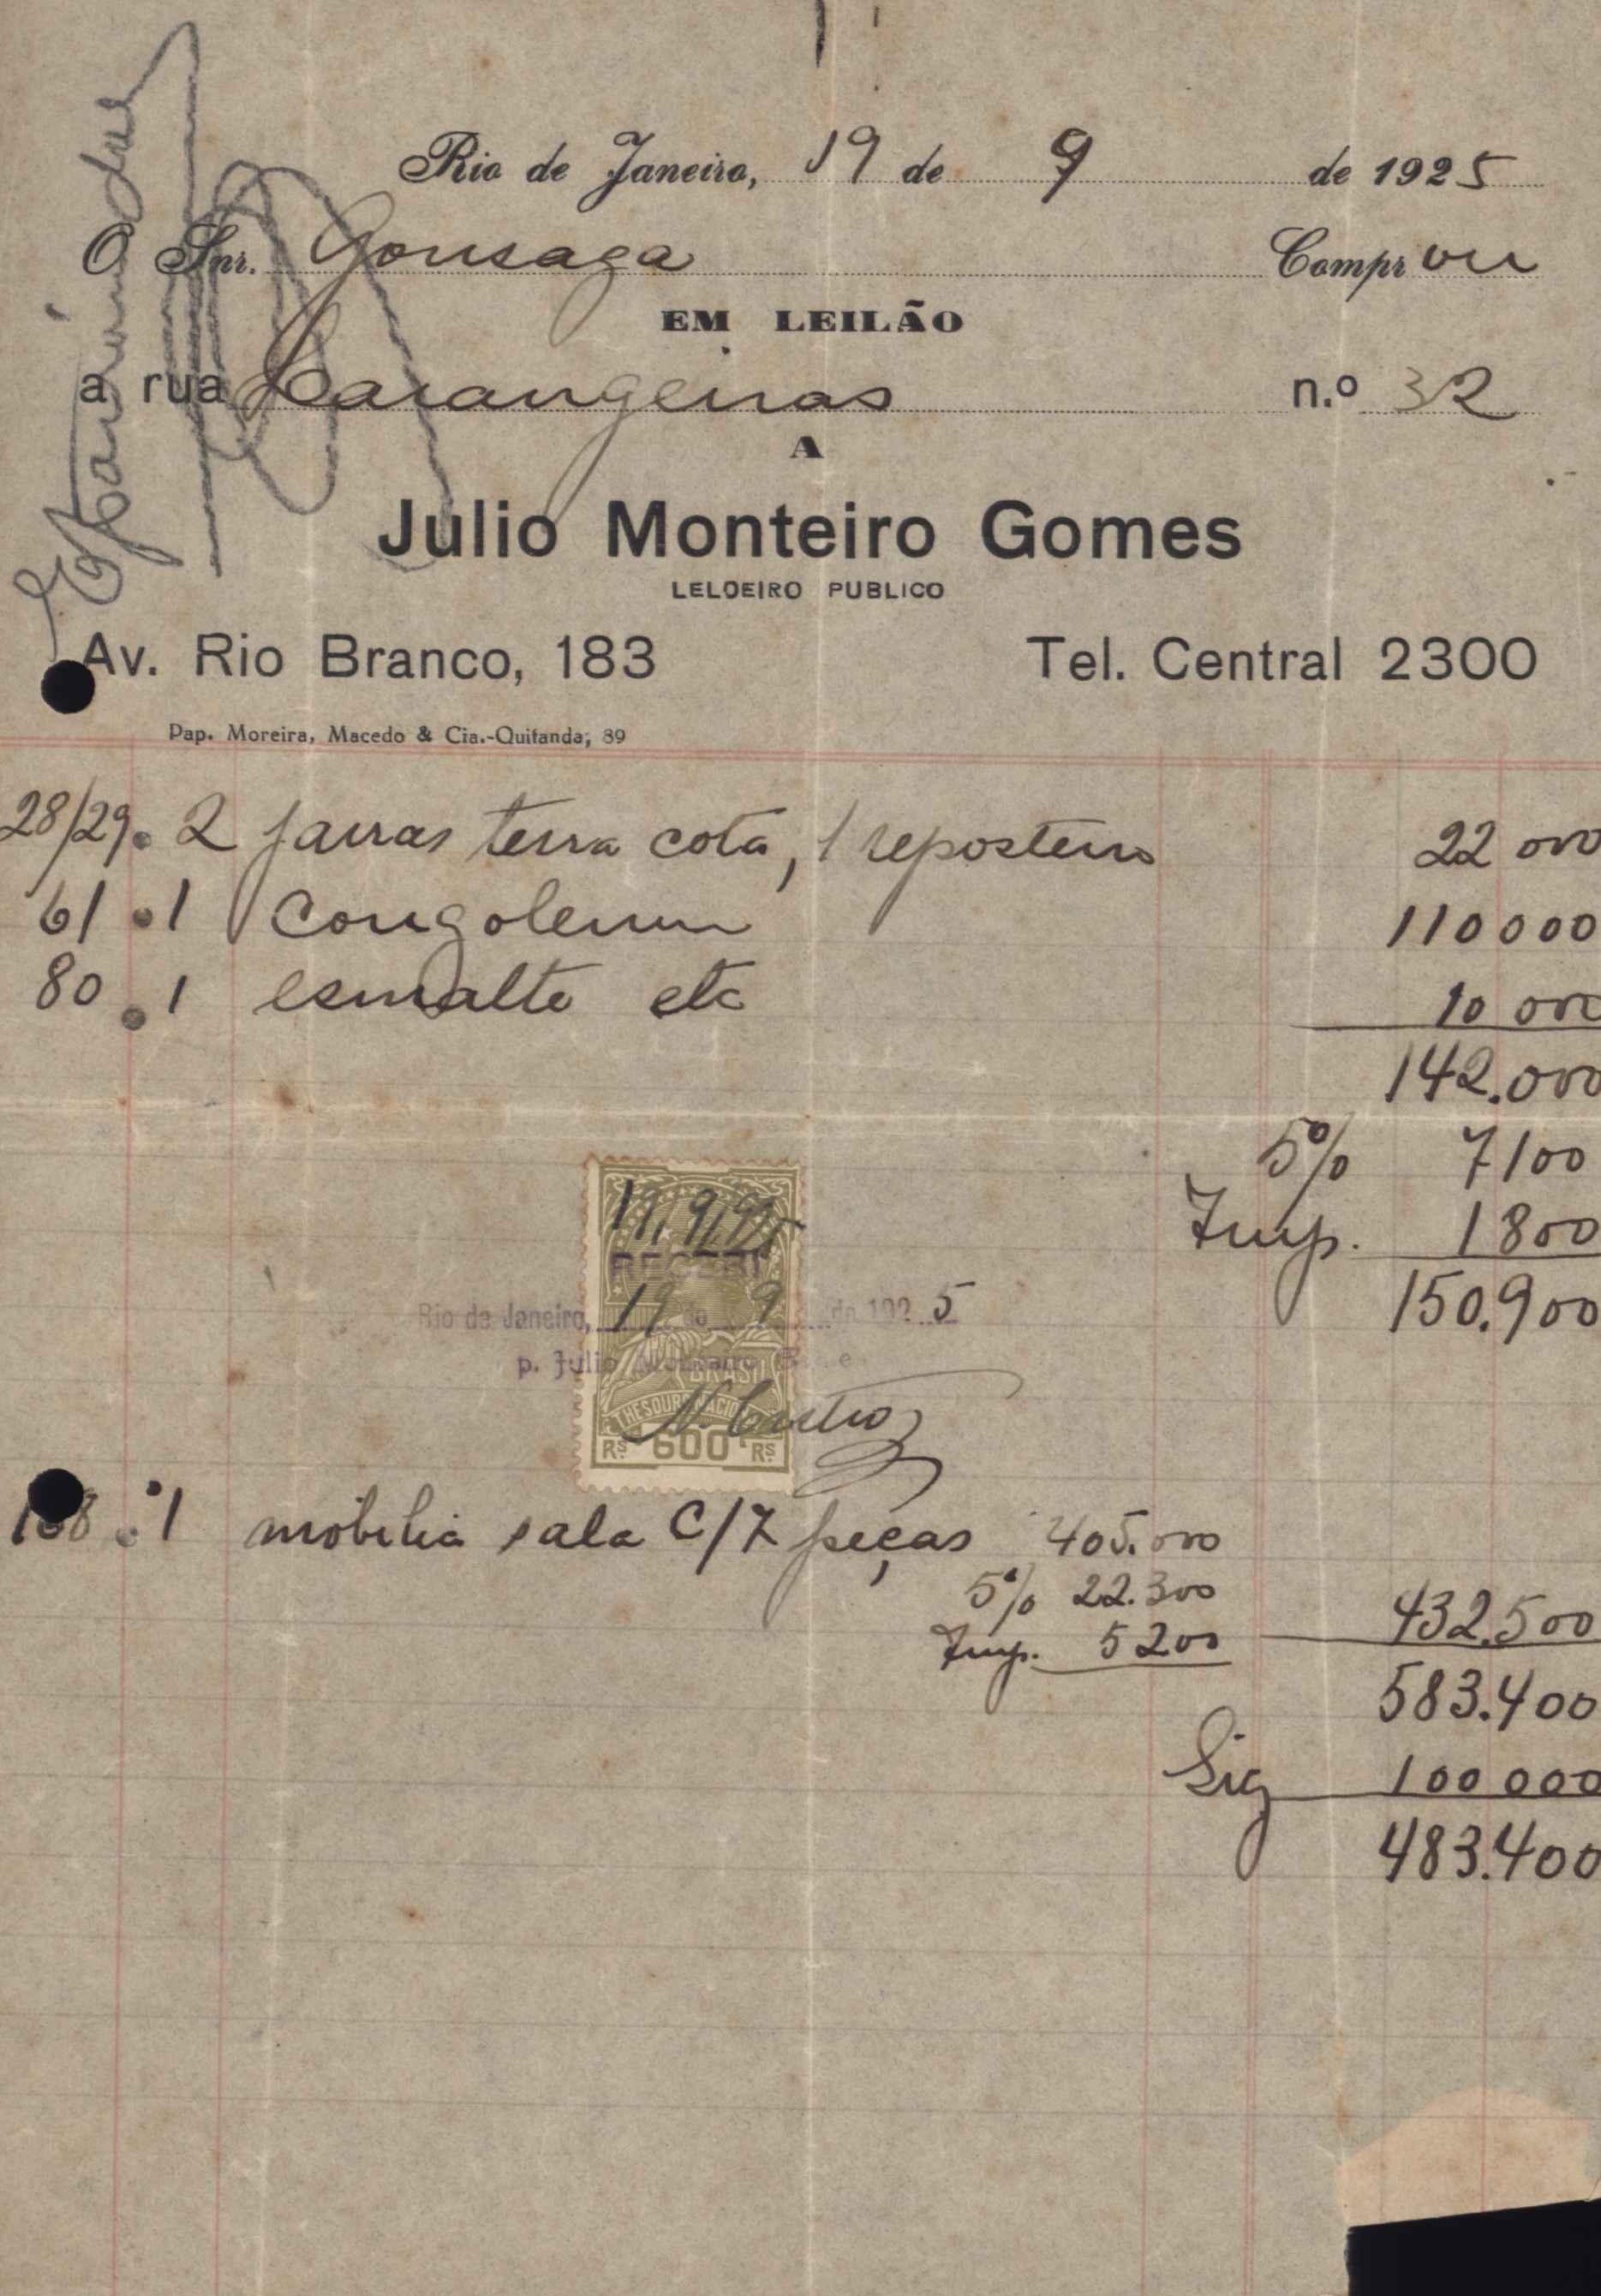 Rio de Janeiro, 19 de 9 de 1925
O Snr. Gonsaga Comprou
EM LEILÃO
a rua Larangeiras n.º 32
A
Julio Monteiro Gomes
LELOEIRO PUBLICO
Av. Rio Branco, 183 Tel. Central 2300
Pap. Moreira, Macedo & Cia.-Quitanda, 89
28/29. 2 jarras terra cota, 1 reposteiro 22 000
61 . 1 congoleum 110 000
80 . 1 esmalte etc 10 000
142.000
5% 7100
Imp. 1800
150.900
19/9/925
RECEBI
Rio de Janeiro, 19 de 9 de 1925
p. Julio Monteiro
BRASIL
THESOURO NACIONAL
N. Castro
Rs 600 Rs
. 1 mobilia sala C/7 peças 405.000
5% 22.300
432.500
Imp. 5200
583.400
Sig 100 000
483.400